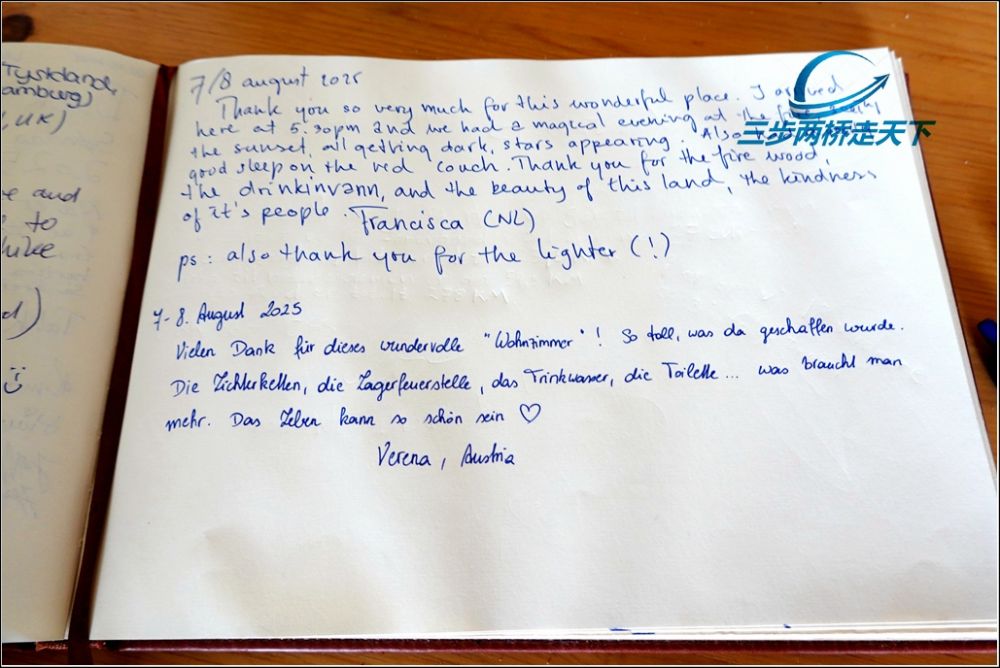 Tyskland
amburg)
, UK)
e and
e to
hike
d)
7/8 august 2025
Thank you so very much for this wonderful place. I arrived
here at 5.30pm and we had a magical evening at the fire
the sunset, all getting dark, stars appearing. Also
good sleep on the red couch. Thank you for the fire wood,
the drinkinvann, and the beauty of this land, the kindness
of it's people. Francisca (NL)
ps: also thank you for the lighter (!)
7-8. August 2025
Vielen Dank für dieses wundervolle "Wohnzimmer"! So toll, was da geschaffen wurde.
Die Lichterketten, die Lagerfeuerstelle, das Trinkwasser, die Toilette... was braucht man
mehr. Das Leben kann so schön sein ♡
Verena, Austria
三步两桥走天下